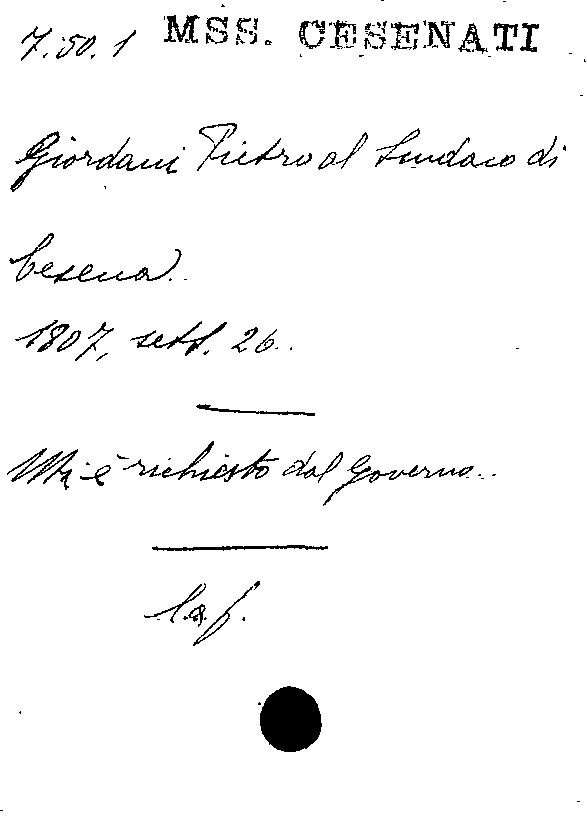 7.50.1 MSS. CESENATI
Giordani Pietro al Sindaco di
Cesena.
1807, sett. 26.
Mi è richiesto dal Governo..
l.a.f.